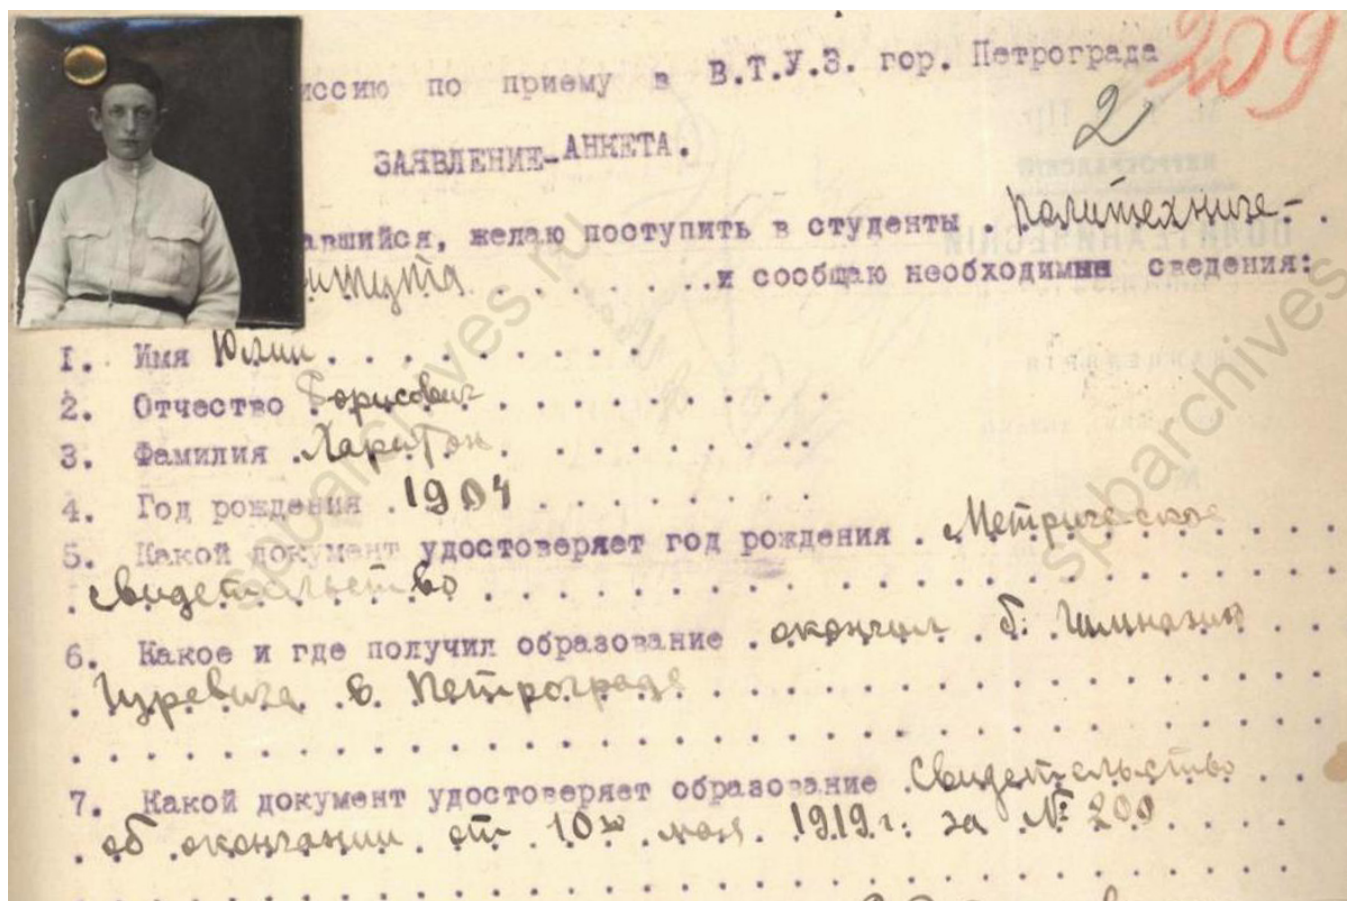 209
иссию по приему в В.Т.У.З. гор. Петрограда
2
ЗАЯВЛЕНИЕ-АНКЕТА.
авшийся, желаю поступить в студенты . Политехниче-
итута . . . . . . . . и сообщаю необходимые сведения:
1. Имя Юлий . . . . . . . . . .
2. Отчество Борисович . . . . . . . . . .
3. Фамилия . Харитон . . . . . . . . .
4. Год рождения . 1904 . . . . . . . .
5. Какой документ удостоверяет год рождения . Метрическое . . .
. свидетельство . . . . . . . . . . . . . . . . . . . .
6. Какое и где получил образование . окончил . б. гимназию . .
. Гуревича в Петрограде . . . . . . . . . . . . . . . . .
7. Какой документ удостоверяет образование . Свидетельство . .
. об окончании от 10го мая 1919 г. за № 200 . . . .
spbarchives.ru
spbarchives